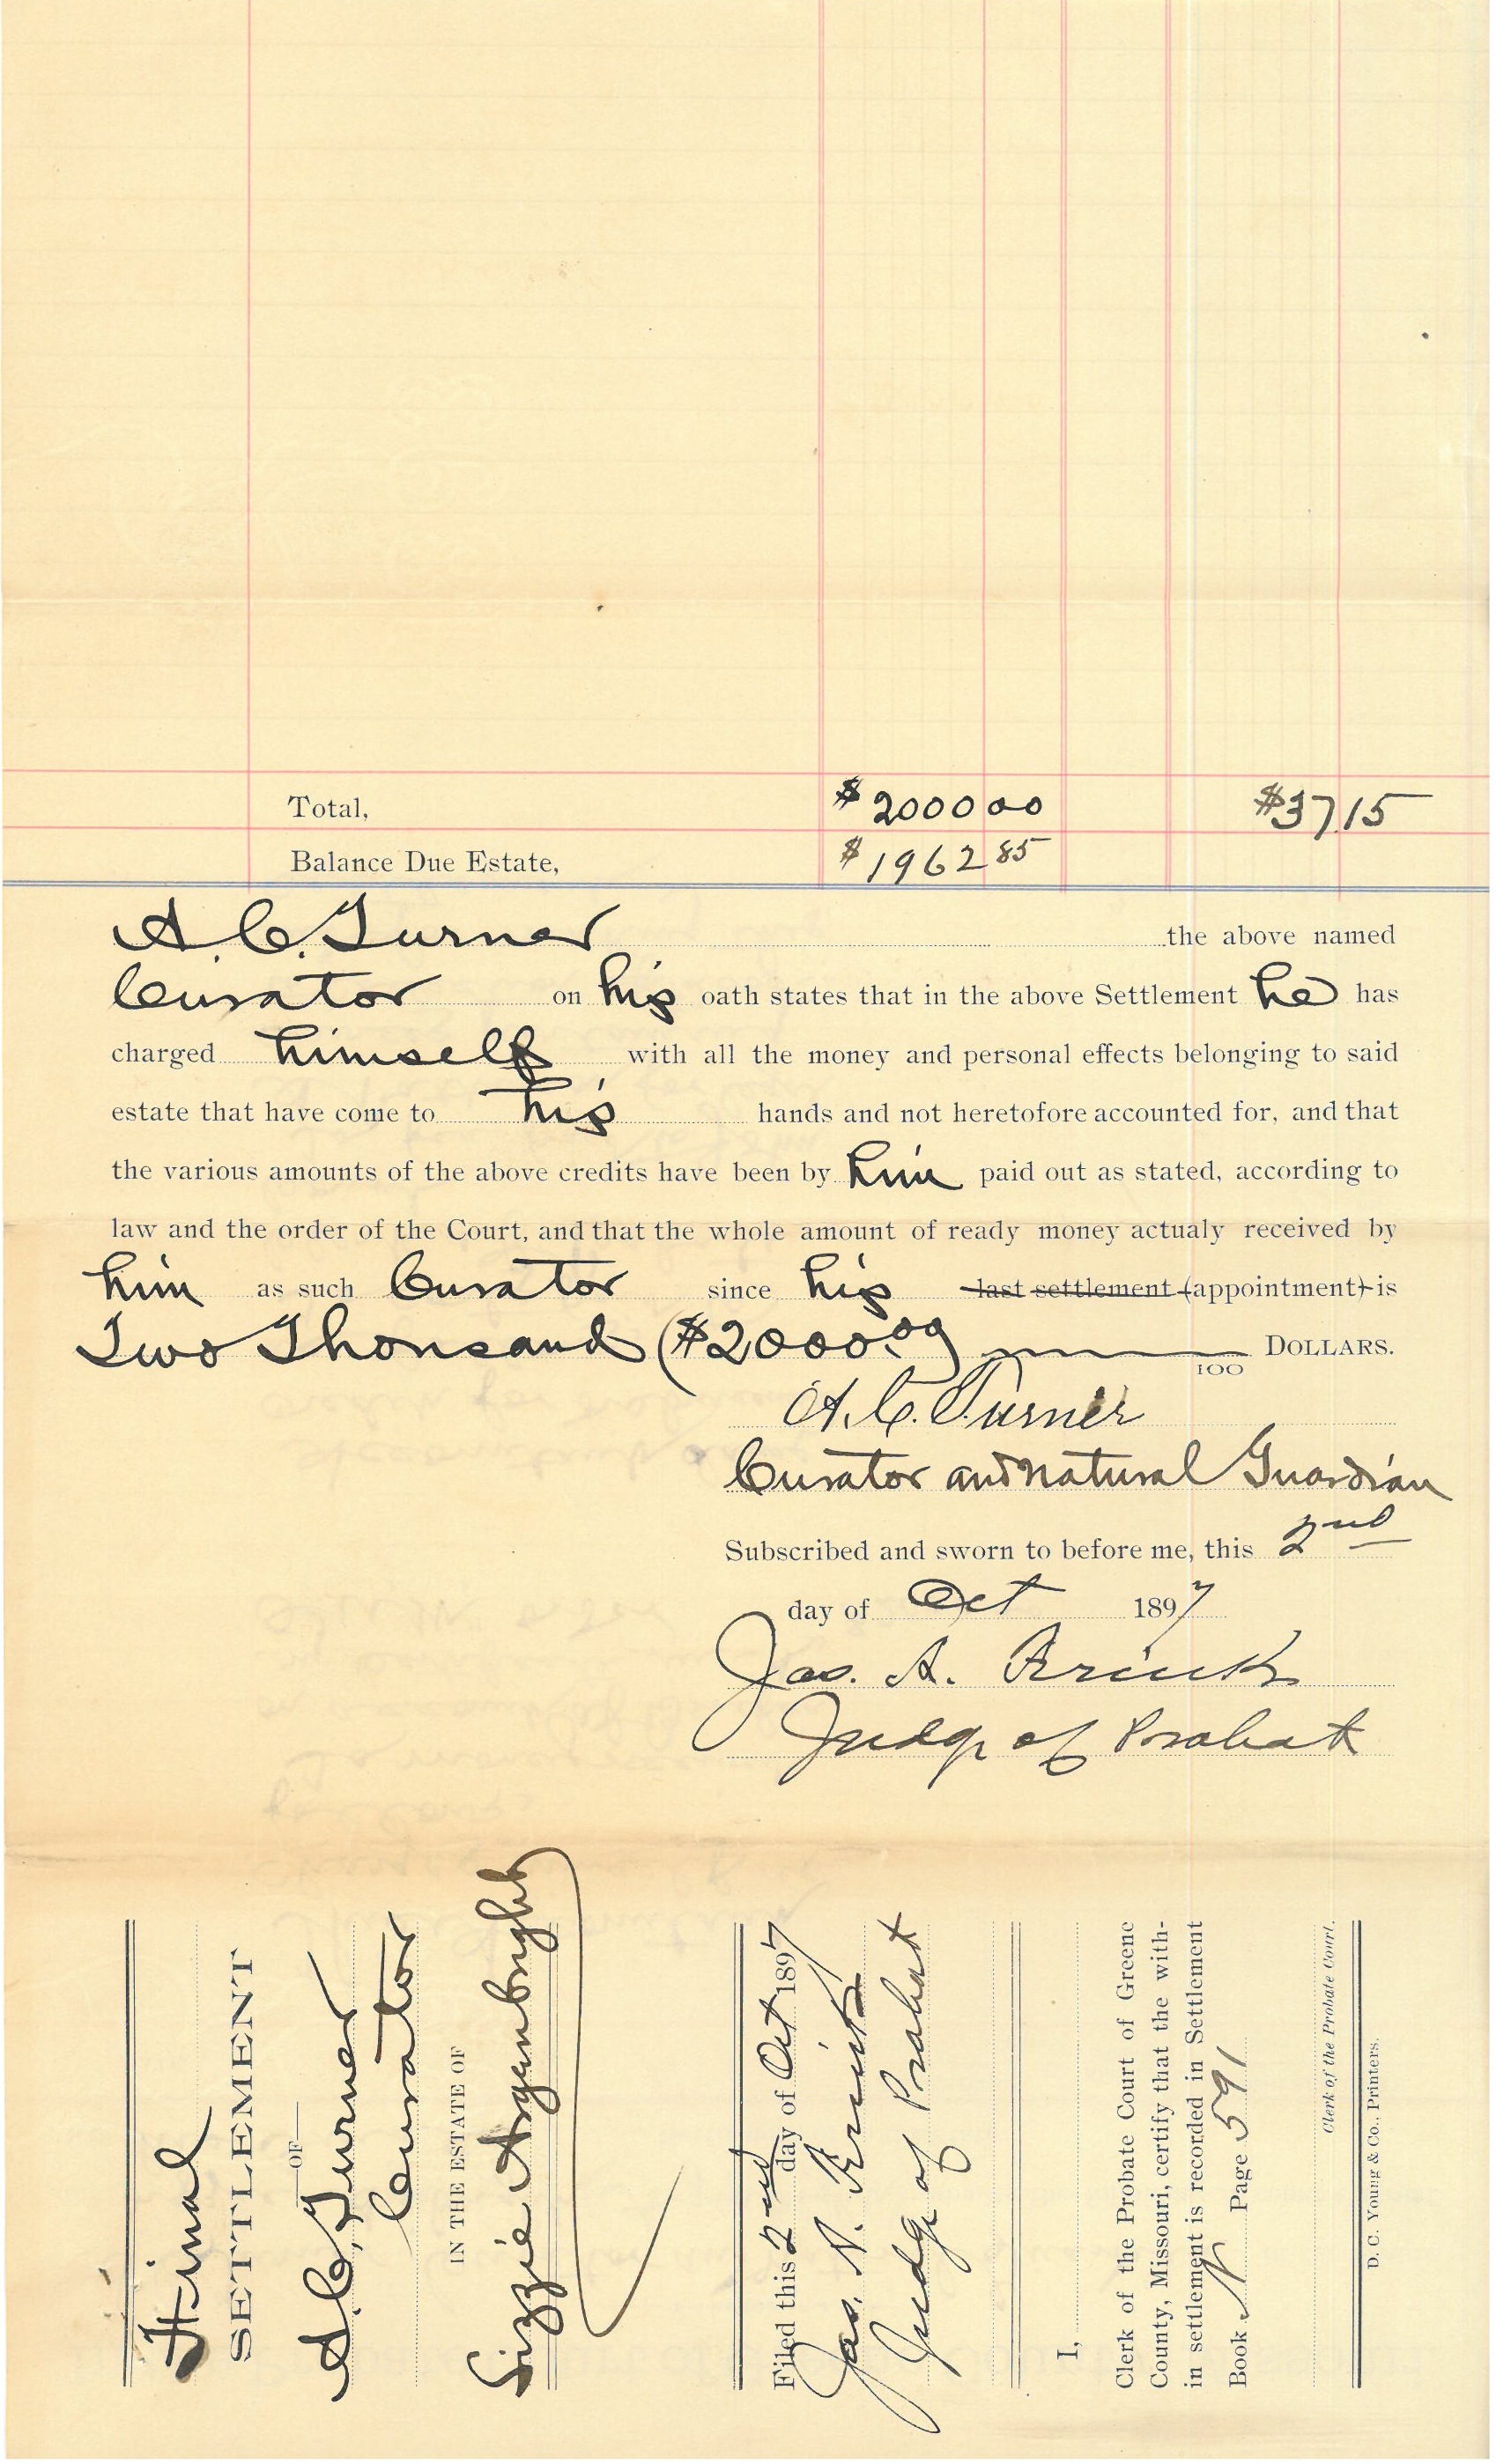 Total, $2000 00 $37.15
Balance Due Estate, $1962 85
A. C. Turner the above named
Curator on his oath states that in the above Settlement he has
charged himself with all the money and personal effects belonging to said
estate that have come to his hands and not heretofore accounted for, and that
the various amounts of the above credits have been by him paid out as stated, according to
law and the order of the Court, and that the whole amount of ready money actualy received by
him as such Curator since his last settlement (appointment) is
Two Thousand ($2000.00) 100 DOLLARS.
A. C. Turner
Curator and Natural Guardian
Subscribed and sworn to before me, this 2nd
day of Oct 1897
Jas. A.
Judge of Probate
Final
SETTLEMENT
OF
A. C. Turner
Curator
IN THE ESTATE OF
Lizzie Argenbright
Filed this 2nd day of Oct 1897
Jas.
Judge of Probate
I,
Clerk of the Probate Court of Greene
County, Missouri, certify that the with-
in settlement is recorded in Settlement
Book N Page 591
Clerk of the Probate Court.
D. C. Young & Co., Printers.